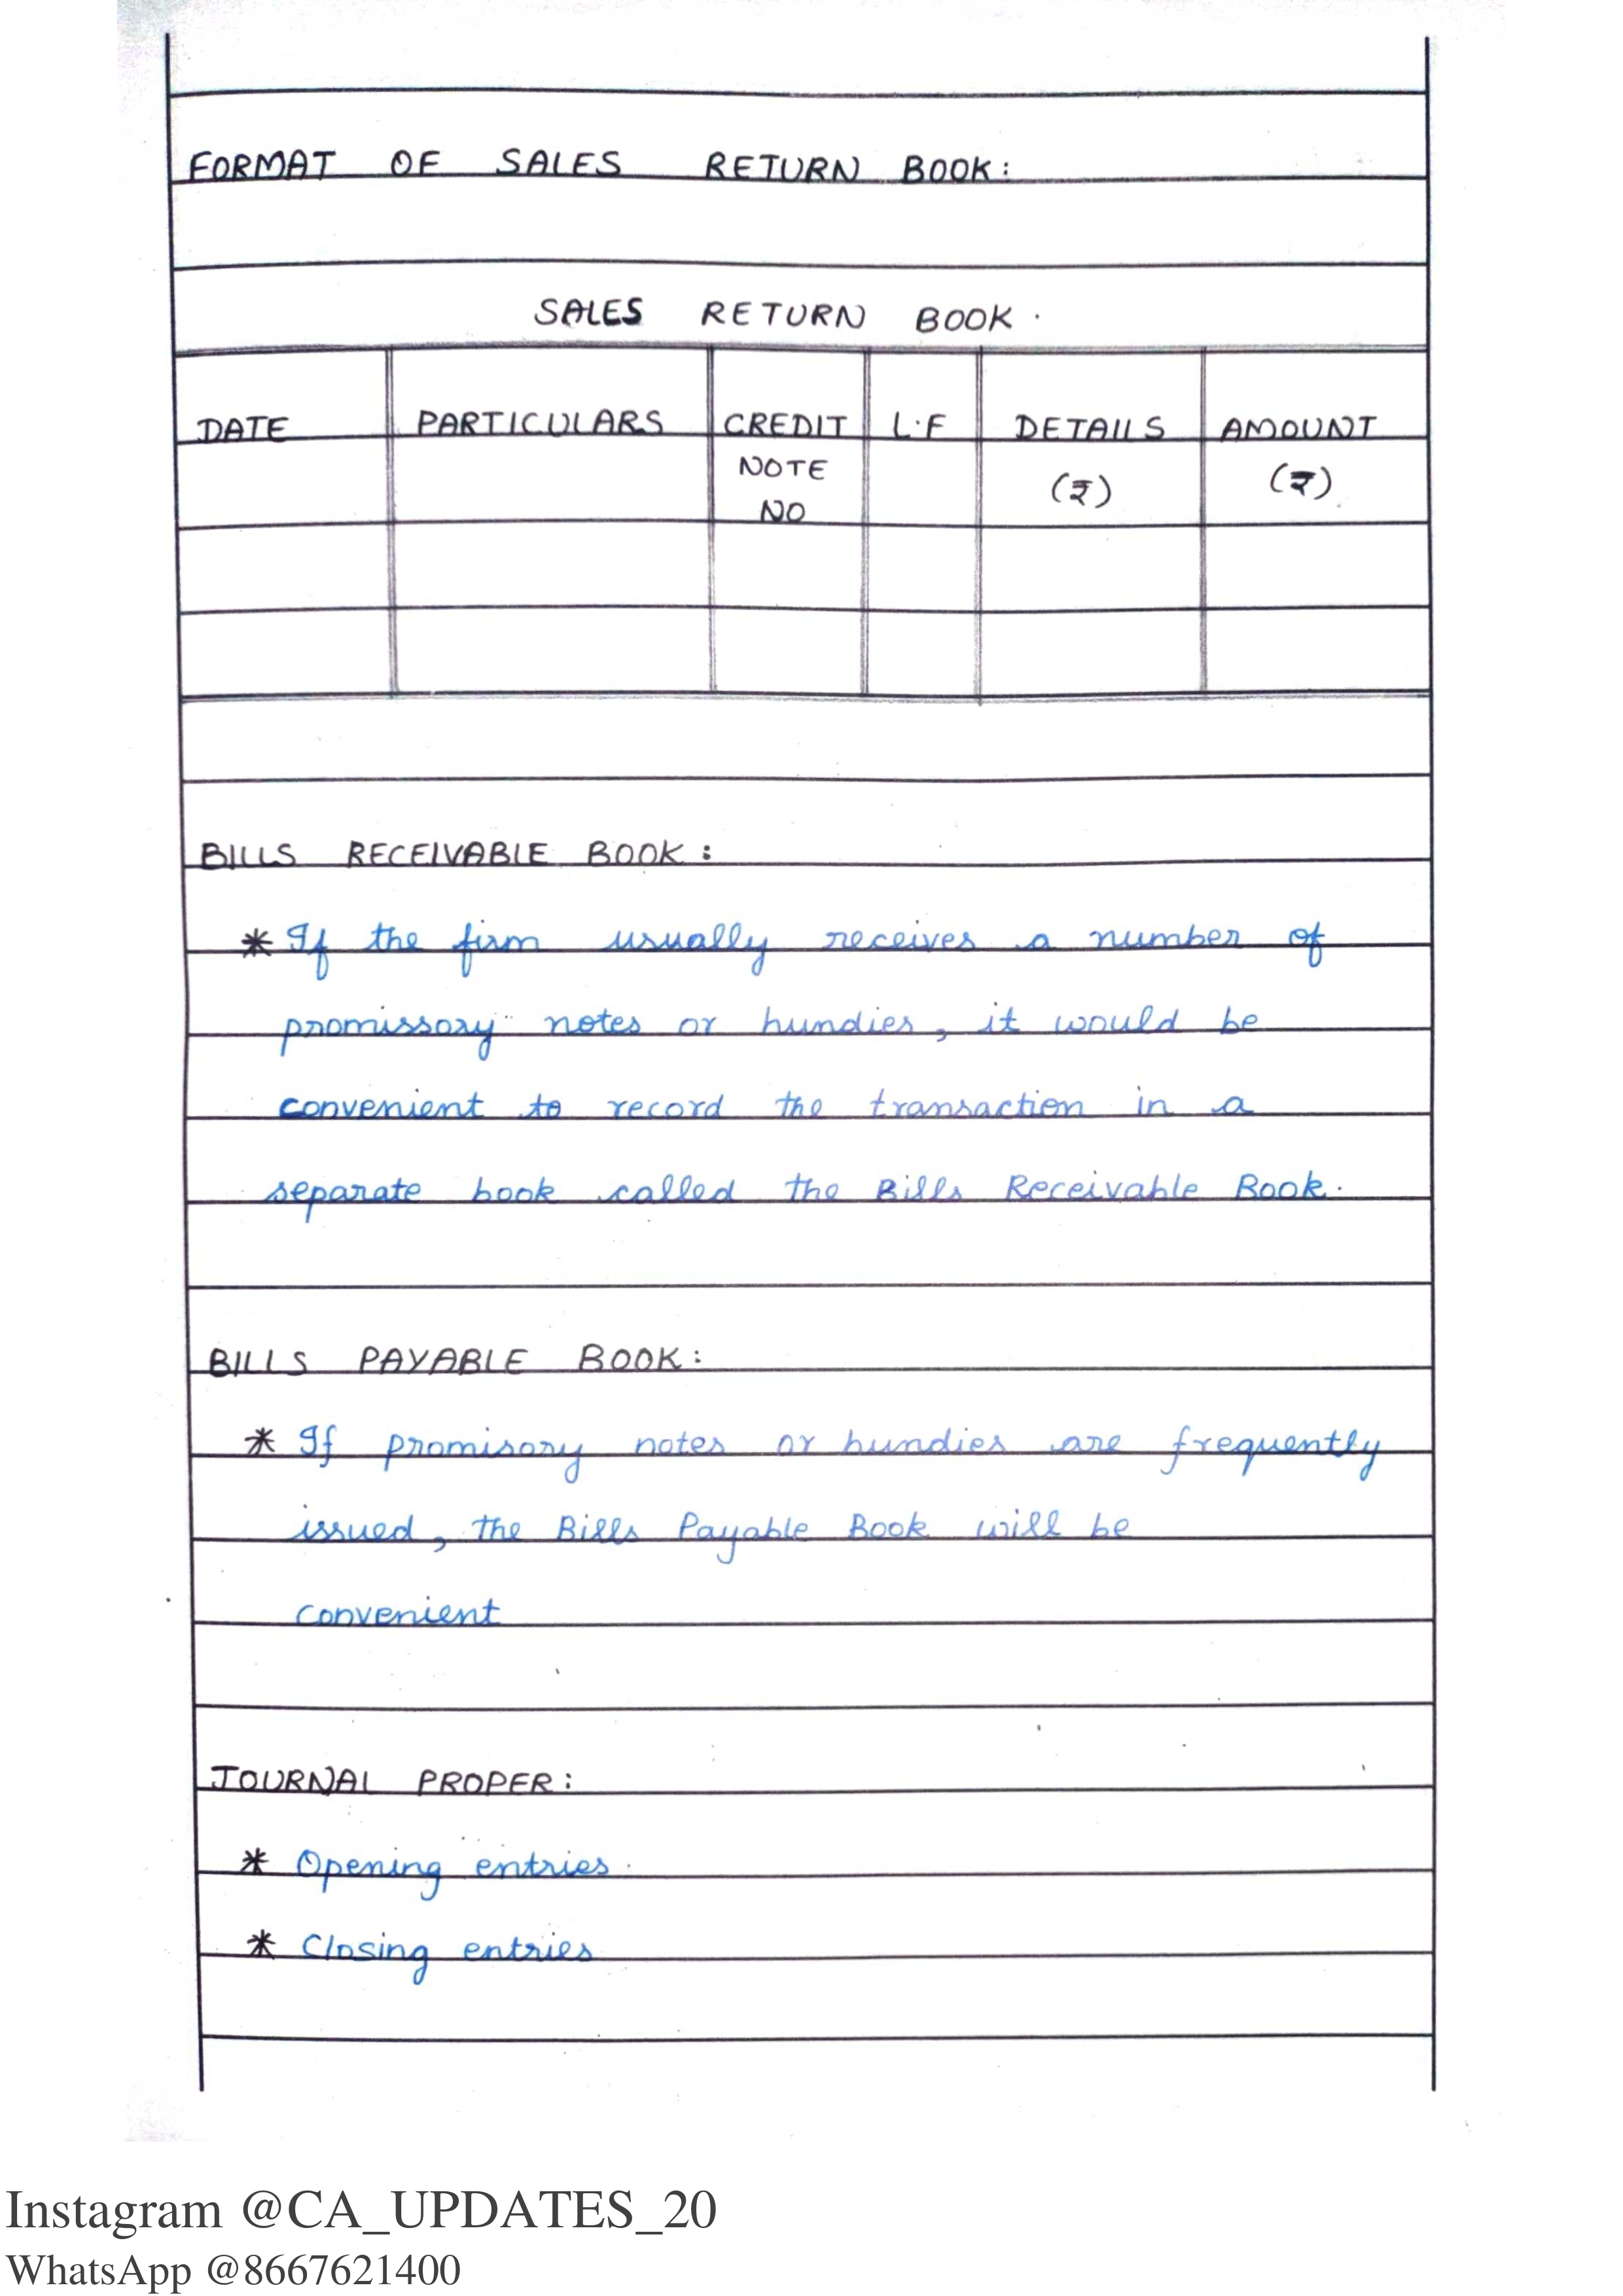 FORMAT OF SALES RETURN BOOK:
SALES RETURN BOOK.
DATE PARTICULARS CREDIT NOTE NO L.F DETAILS (₹) AMOUNT (₹)
BILLS RECEIVABLE BOOK:
* If the firm usually receives a number of
promissory notes or hundies, it would be
convenient to record the transaction in a
separate book called the Bills Receivable Book.
BILLS PAYABLE BOOK:
* If promisory notes or hundies are frequently
issued, the Bills Payable Book will be
convenient
JOURNAL PROPER:
* Opening entries.
* Closing entries
Instagram @CA_UPDATES_20
WhatsApp @8667621400